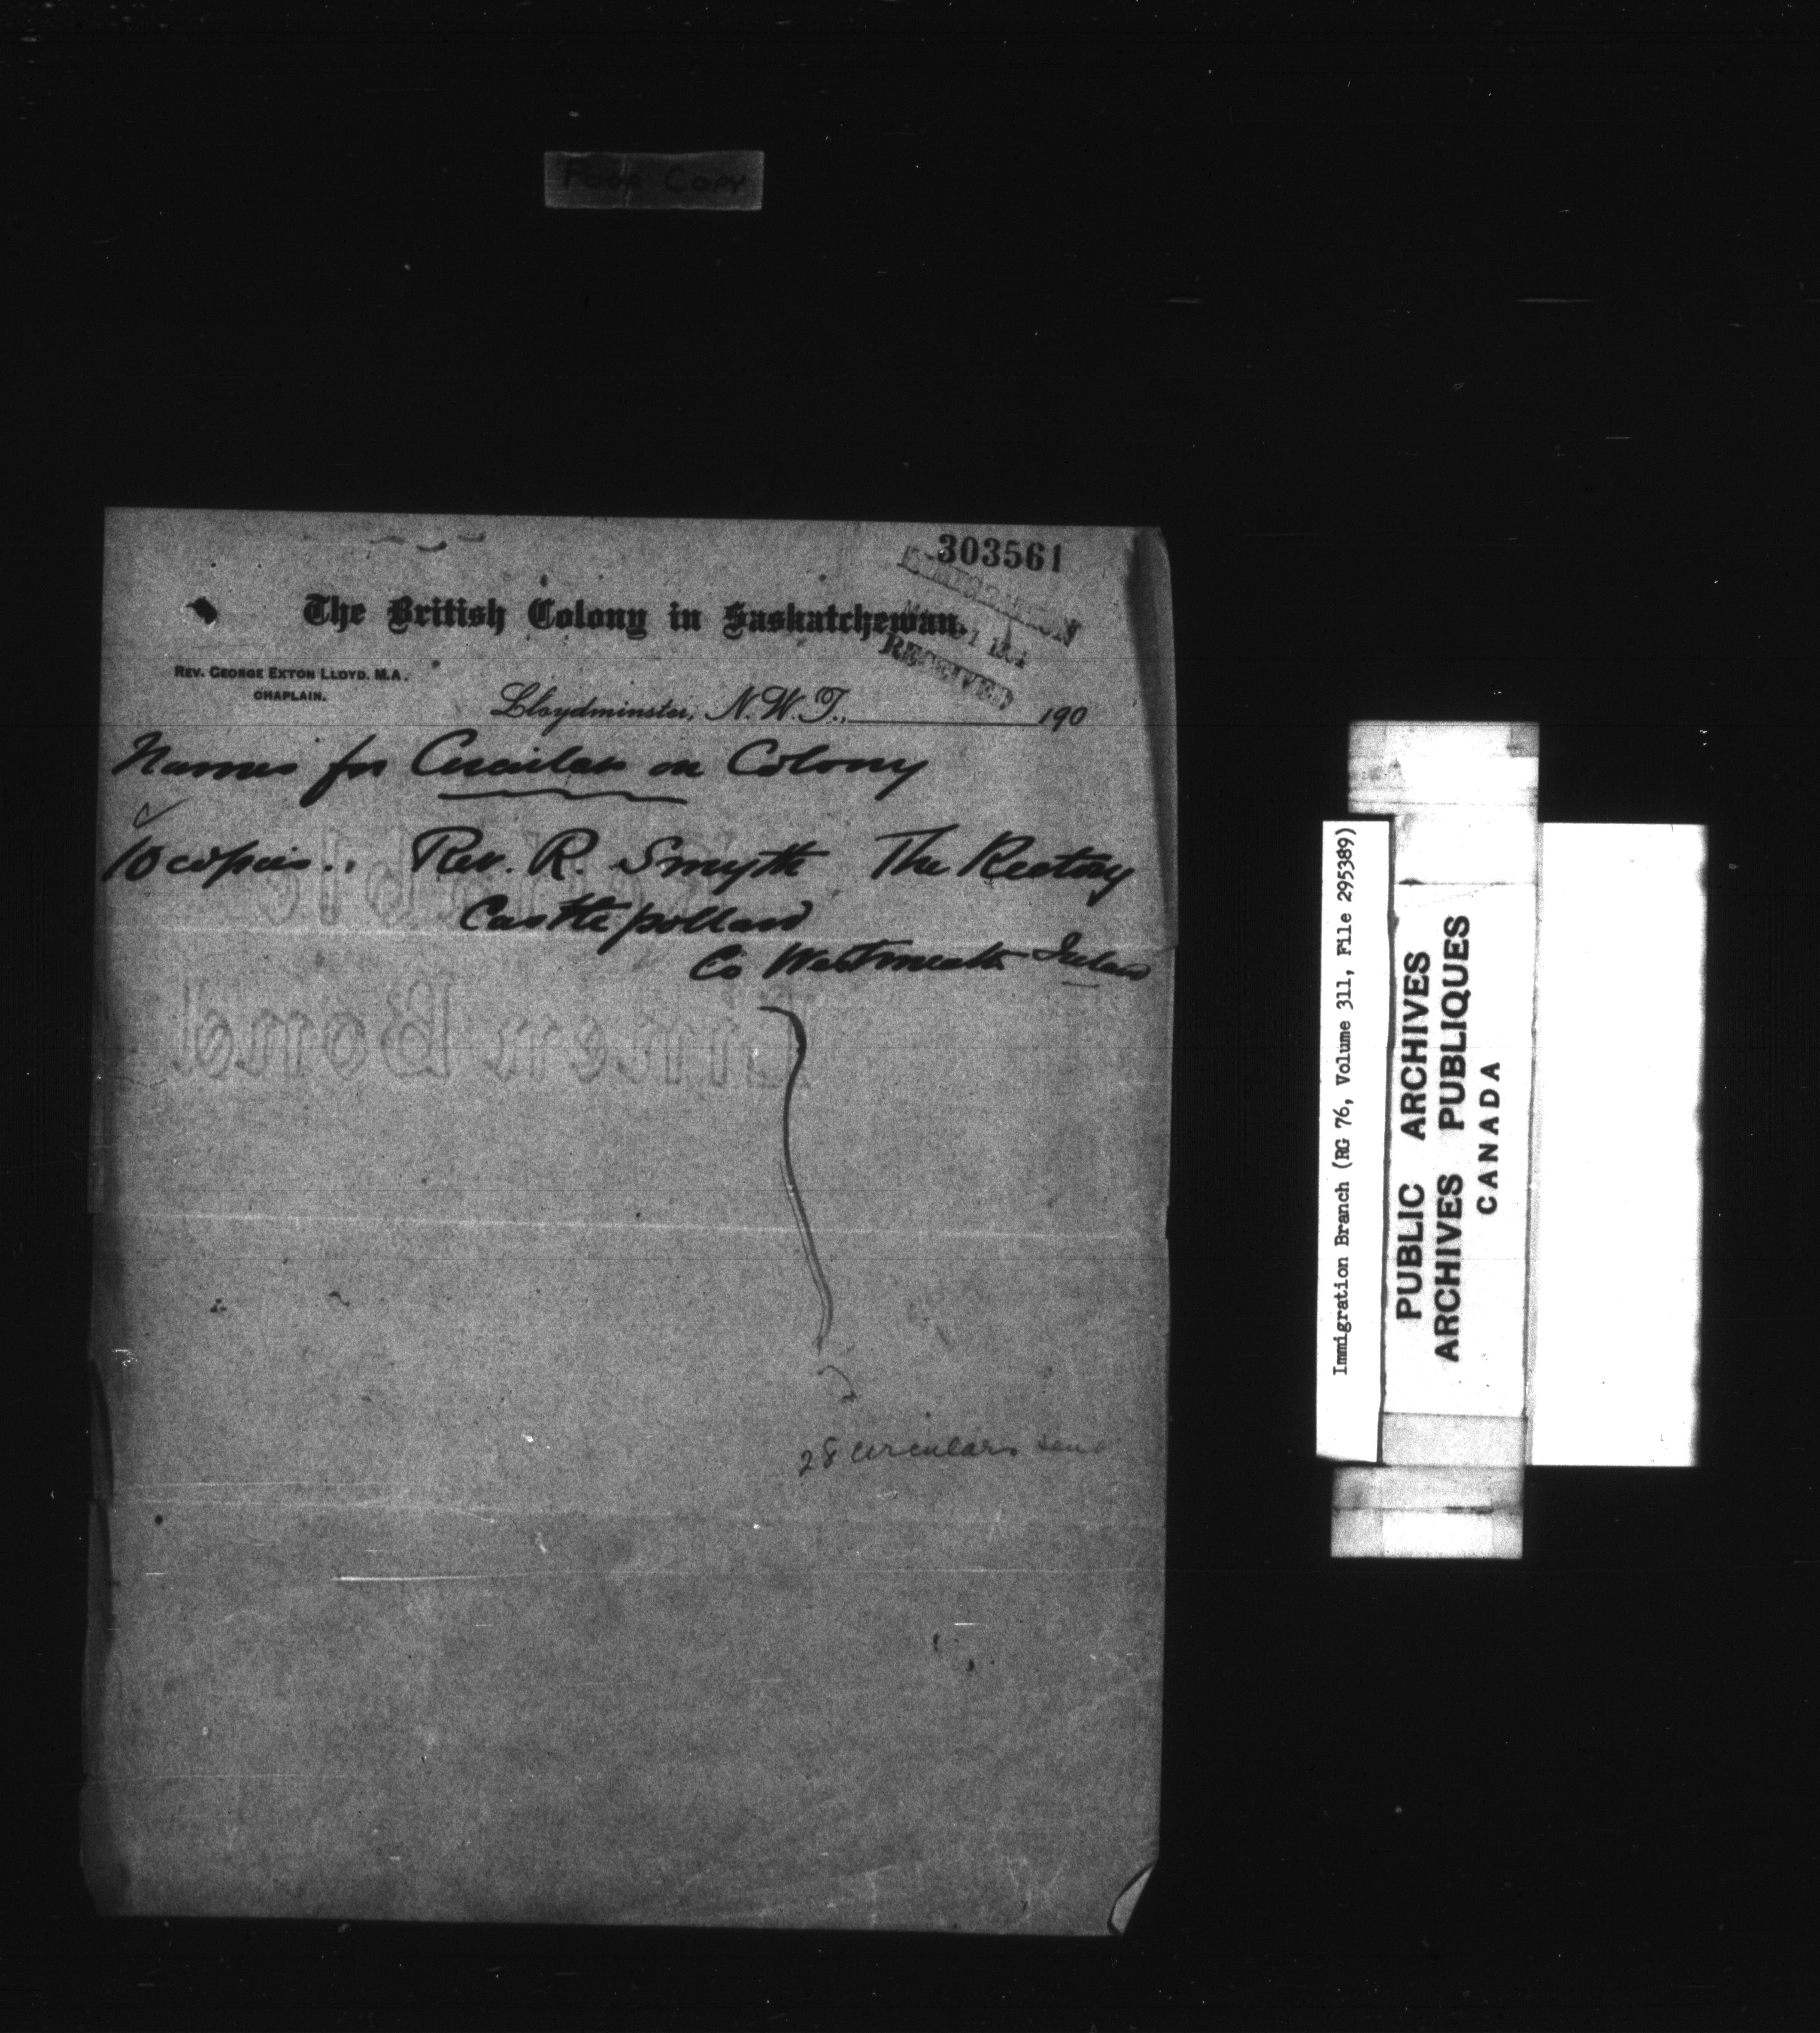 Poor Copy
303561
IMMIGRATION
1 1904
RECEIVED
The British Colony in Saskatchewan.
REV. GEORGE EXTON LLOYD. M.A.
CHAPLAIN.
Lloydminster, N.W.T., 190
Names for Circular on Colony
10 copies.. Rev. R. Smyth The Rectory
Castlepollard
Co Westmeath Ireland
Linen Bond
28 circulars sent
Immigration Branch (RG 76, Volume 311, File 295389)
PUBLIC ARCHIVES
ARCHIVES PUBLIQUES
CANADA